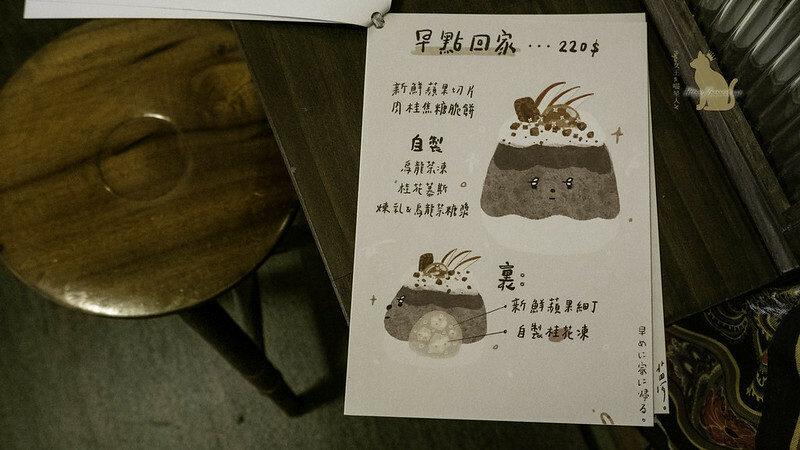 早點回家 ... 220$
新鮮蘋果切片
肉桂焦糖脆餅
自製
烏龍茶凍
桂花慕斯
煉乳&烏龍茶糖漿
裏:
新鮮蘋果細丁
自製桂花凍
早めに家に帰る。
女王a喵星人